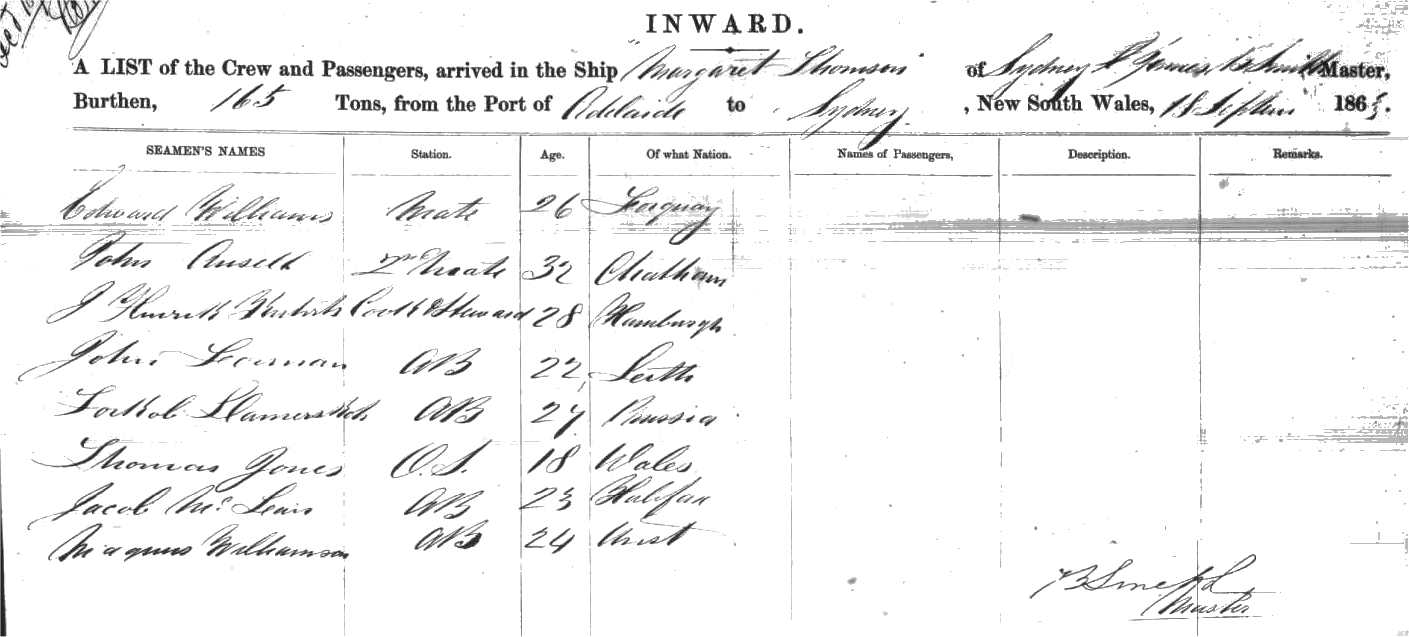 INWARD.
A LIST of the Crew and Passengers, arrived in the Ship "Margaret Thomson of Sydney Smith Master,
Burthen, 165 Tons, from the Port of Adelaide to Sydney, New South Wales, 18 Septem 186
SEAMEN'S NAMES Station. Age. Of what Nation. Names of Passengers, Description. Remarks.
Edward Williams Mate 26 Torquay
John Ansell 2nd Mate 32 Chatham
J Cook & Steward 28 Hamburgh
John AB 22 Leith
AB 27 Prussia
Thomas Jones O.S. 18 Wales
Jacob Mc Lean AB 23 Halifax
Magnus Williamson AB 24 Unst
Master